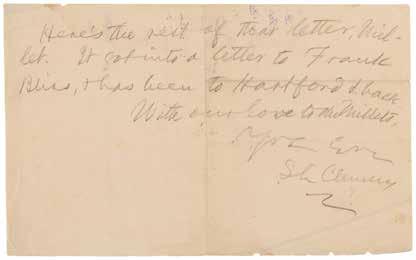 Here's the rest of that letter, Mil-
let. It got into a letter to Frank
Bliss, & has been to Hartford & back
With our love to the Millets,
Yrs Ever
SL Clemens